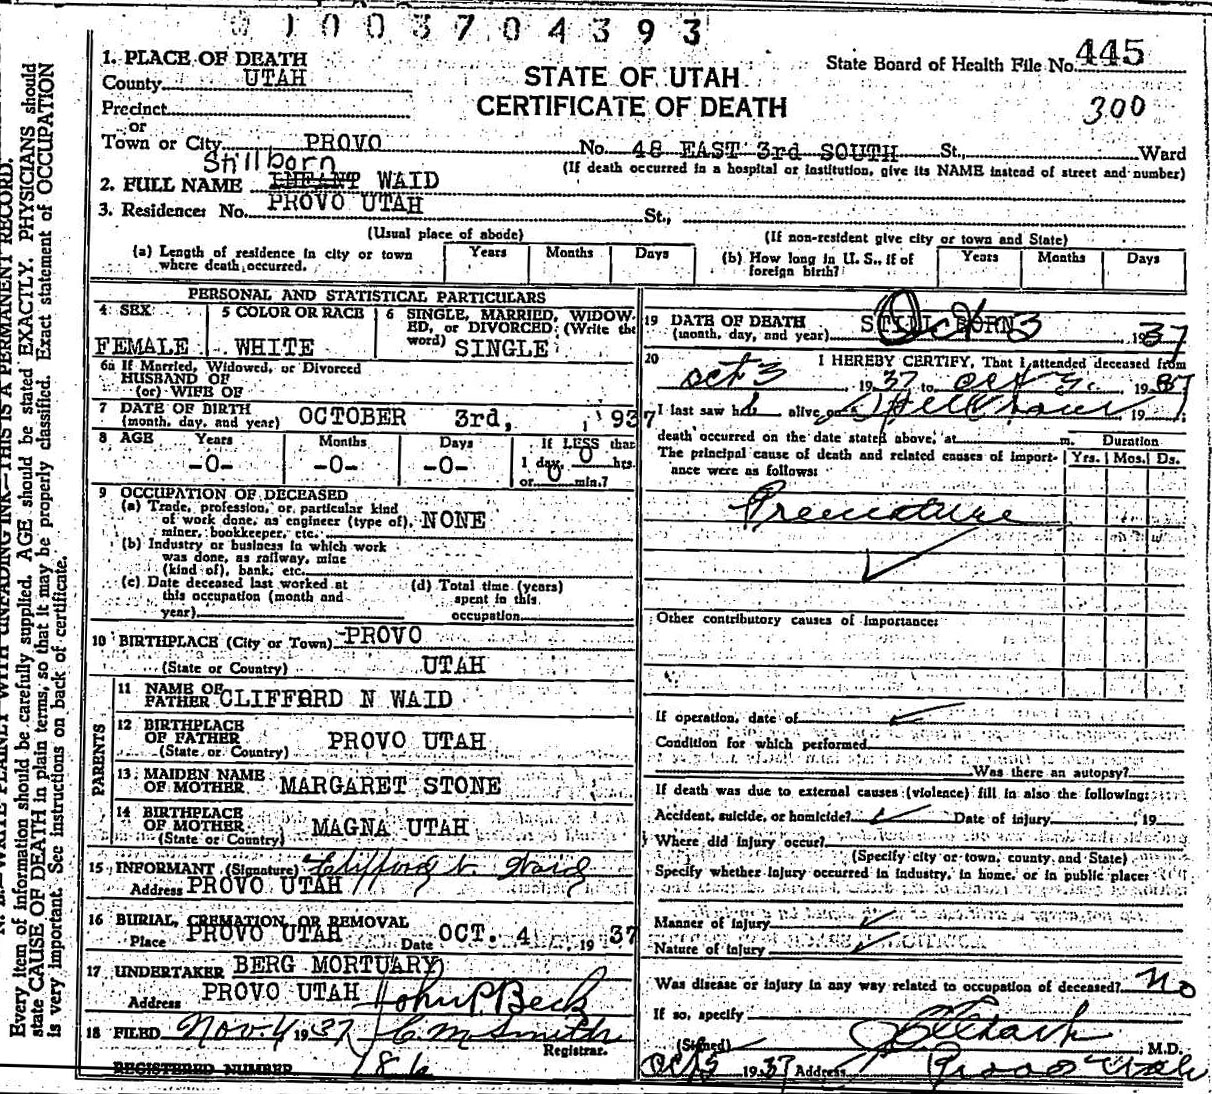 1003704393
1. PLACE OF DEATH
County UTAH
STATE OF UTAH
State Board of Health File No. 445
CERTIFICATE OF DEATH
300
Precinct
or
Town or City PROVO No. 48 EAST 3rd SOUTH St., Ward
(If death occurred in a hospital or institution, give its NAME instead of street and number)
Stillborn
2. FULL NAME INFANT WAID
3. Residence: No. PROVO UTAH St.,
(Usual place of abode) (If non-resident give city or town and State)
(a) Length of residence in city or town where death occurred. Years Months Days
(b) How long in U. S., if of foreign birth? Years Months Days
PERSONAL AND STATISTICAL PARTICULARS
4 SEX
FEMALE
5 COLOR OR RACE
WHITE
6 SINGLE, MARRIED, WIDOW-
ED, or DIVORCED: (Write the
word) SINGLE
6a If Married, Widowed, or Divorced
HUSBAND OF
(or) WIFE OF
7 DATE OF BIRTH
(month, day, and year) OCTOBER 3rd, 1937
8 AGE Years Months Days If LESS than
-0- -0- -0- 1 day, 0 hrs.
or 0 min.?
9 OCCUPATION OF DECEASED
(a) Trade, profession, or particular kind
of work done, as engineer (type of), NONE
miner, bookkeeper, etc.
(b) Industry or business in which work
was done, as railway, mine
(kind of), bank, etc.
(c) Date deceased last worked at
this occupation (month and
year)
(d) Total time (years)
spent in this
occupation
10 BIRTHPLACE (City or Town) PROVO
(State or Country) UTAH
PARENTS
11 NAME OF
FATHER CLIFFORD N WAID
12 BIRTHPLACE
OF FATHER PROVO UTAH
(State or Country)
13 MAIDEN NAME
OF MOTHER MARGARET STONE
14 BIRTHPLACE
OF MOTHER MAGNA UTAH
(State or Country)
15 INFORMANT (Signature) Clifford N. Waid
Address PROVO UTAH
16 BURIAL, CREMATION, OR REMOVAL
Place PROVO UTAH Date OCT. 4 1937
17 UNDERTAKER BERG MORTUARY
Address PROVO UTAH John P. Beck
18 FILED Nov. 4 1937 C M Smith
Registrar.
REGISTERED NUMBER 186
19 DATE OF DEATH STILL BORN Oct 3
(month, day, and year) 1937
20 I HEREBY CERTIFY, That I attended deceased from
Oct 3, 1937 to Oct 3, 1937
I last saw h alive on Stillborn, 19
death occurred on the date stated above, at m. Duration
The principal cause of death and related causes of import-
ance were as follows: Yrs. Mos. Ds.
Premature
Other contributory causes of importance:
If operation, date of
Condition for which performed
Was there an autopsy?
If death was due to external causes (violence) fill in also the following:
Accident, suicide, or homicide? Date of injury 19
Where did injury occur?
(Specify city or town, county, and State)
Specify whether injury occurred in industry, in home, or in public place:
Manner of injury
Nature of injury
Was disease or injury in any way related to occupation of deceased? No
If so, specify
(Signed) M.D.
Oct 5 1937 Address Provo Utah
Every item of information should be carefully supplied. AGE should be stated EXACTLY. PHYSICIANS should
state CAUSE OF DEATH in plain terms, so that it may be properly classified. Exact statement of OCCUPATION
is very important. See instructions on back of certificate.